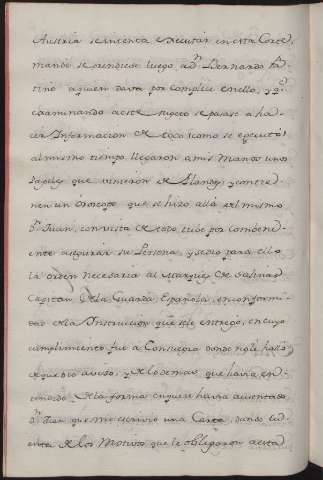 Austria se intenta executar en esta Corte,
mandé se prendiese luego a Dn. Bernardo Pa-
tiño a quien dava por complice en ello, y q.e
examinando a este sugeto se pasase a ha-
cer Informacion de todo como se egecutó:
al mismo tiempo llegaron a mis Manos unos
Papeles que vinieron de Flandes y contie-
nen un Oroscopo que se hizo allá del mismo
Dn. Juan, con vista de todo, tube por combeni-
ente asegurar su Persona, y se dio para ello
la orden necesaria al Marques de Salinas
Capitan de la Guarda Española, en confirmi-
dad de la Instruccion que se le entregó, en cuyo
cumplimiento fué a Consuegra donde no le halló
de que dio aviso, y de lo demas que havia en-
tendido de la forma en que se havia ausentado
Dn. Juan que me escrivió una Carta, dando cu-
enta de los Motivos que le obligaron a esta